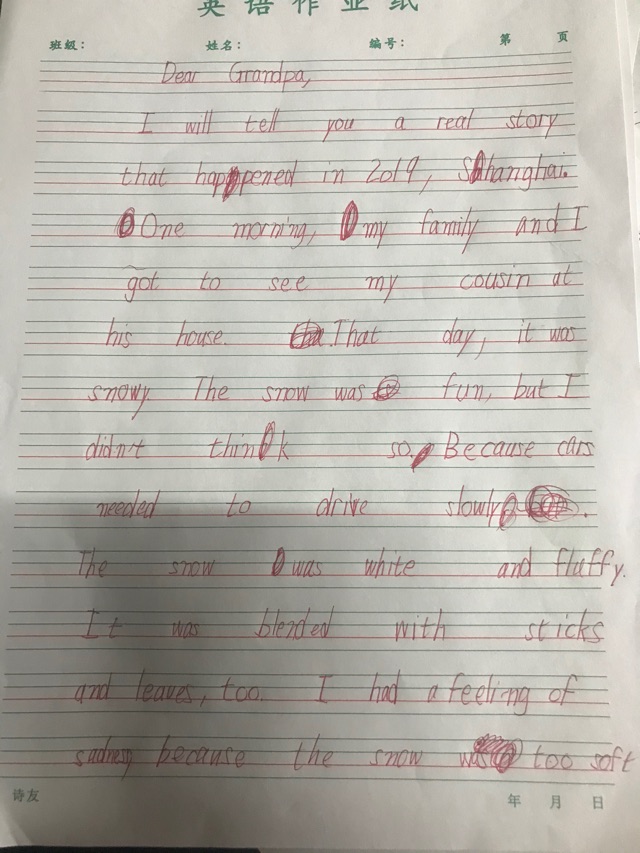 英语作业纸
班级： 姓名： 编号： 第 页
Dear Grandpa,
I will tell you a real story
that happened in 2019, Shanghai.
One morning, my family and I
got to see my cousin at
his house. That day, it was
snowy The snow was fun, but I
didn't think so. Because cars
needed to drive slowly.
The snow was white and fluffy.
It was blended with sticks
and leaves, too. I had a feeling of
sadness because the snow was too soft
诗友 年 月 日